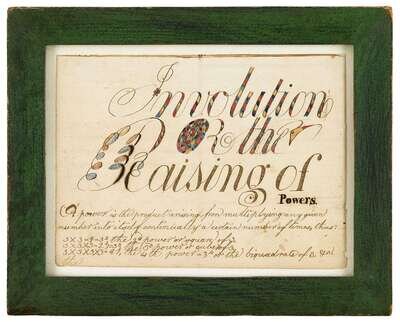 Involution
Or the
Raising of
Powers.
A power is the product arising from multiplying any given
number into itself continually a certain number of times, thus:
3X3=9=3² the 2d power or square of 3.
3X3X3=27=3³ the 3d power or cube of 3.
3X3X3X3=81, the 4th power = 3⁴ or the biquadrate of 3. &c
The